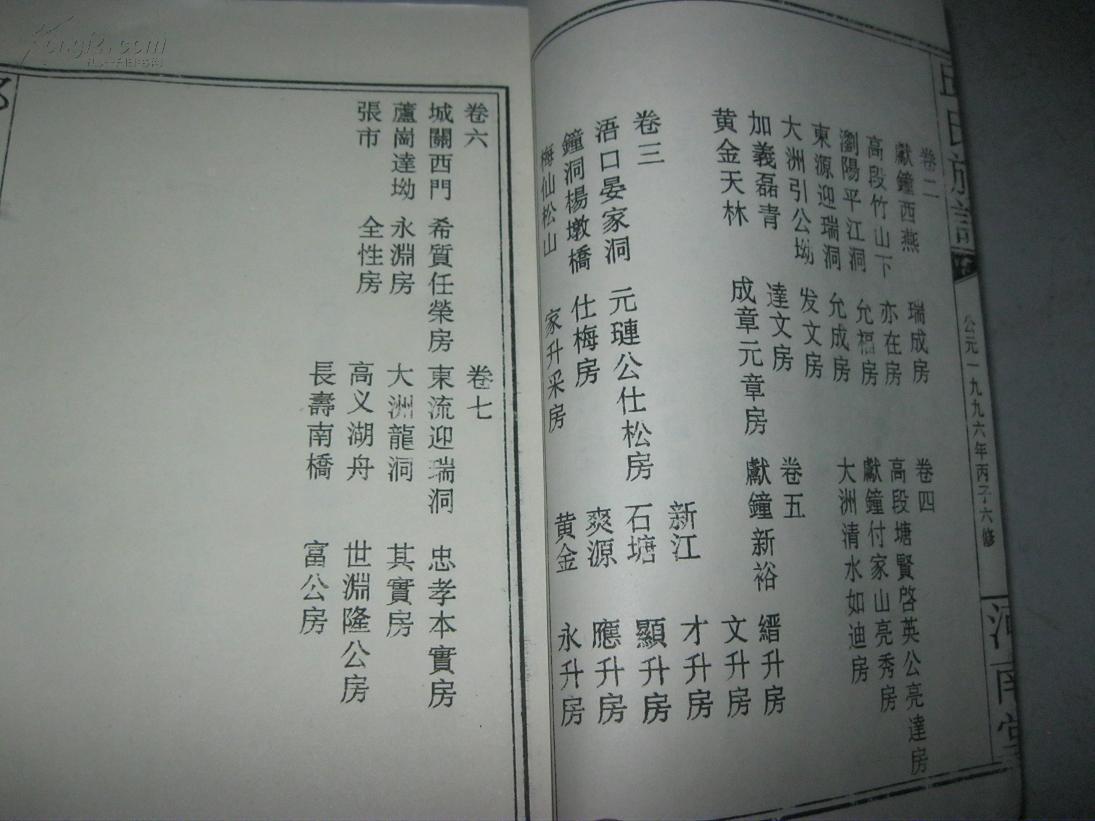 邱氏族譜
公元一九九六年丙子六修
河南堂
卷二
獻鐘西燕 瑞成房
高段竹山下 亦在房
瀏陽平江洞 允福房
東源迎瑞洞 允成房
大洲引公坳 发文房
加義磊青 達文房
黄金天林 成章元章房
卷三
浯口晏家洞 元璉公仕松房
鐘洞楊墩橋 仕梅房
梅仙松山 家升采房
卷四
高段塘賢啓英公亮達房
獻鐘付家山亮秀房
大洲清水如迪房
卷五
獻鐘新裕 縉升房
文升房
新江 才升房
石塘 顯升房
爽源 應升房
黄金 永升房
卷六
城關西門 希質任榮房
蘆崗達坳 永淵房
張市 全性房
卷七
東流迎瑞洞 忠孝本實房
大洲龍洞 其實房
高义湖舟 世淵隆公房
長壽南橋 富公房